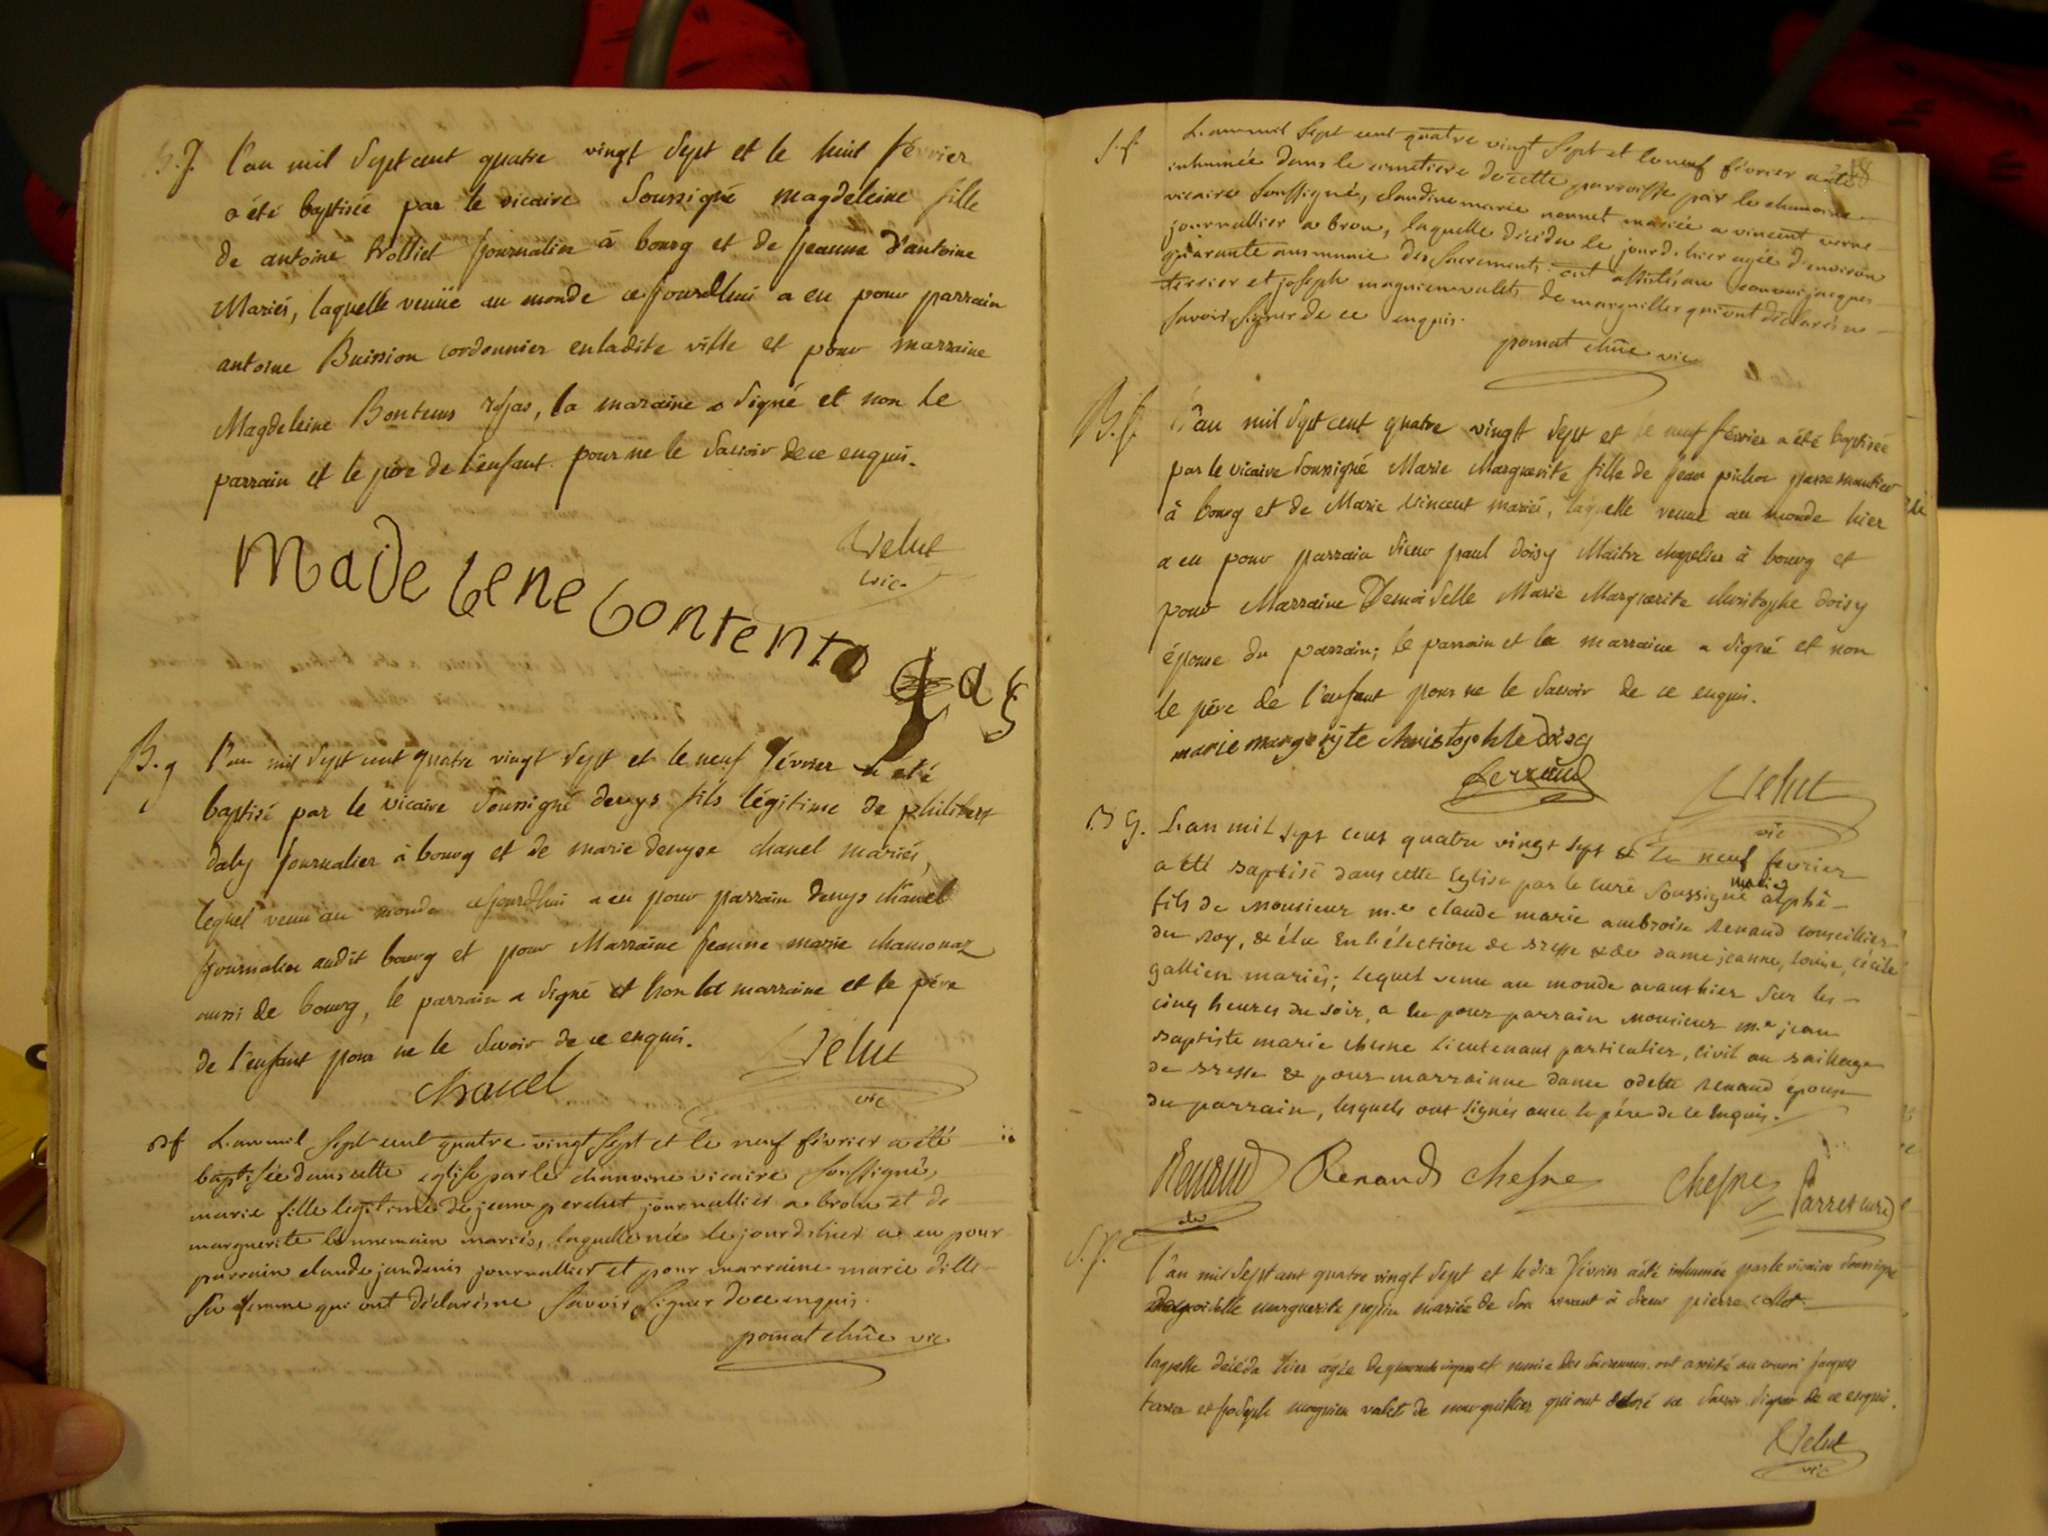 B.f. L'an mil Sept cent quatre vingt Sept et le huit février
a été baptisée par le vicaire Soussigné magdeleine fille
de antoine trolliet journalier à bourg et de jeanne D'antoine
Mariés, laquelle venüe au monde cejourdhui a eu pour parrain
antoine Buission cordonnier enladite ville et pour marraine
Magdeleine Bontems, la maraine a Signé et non le
parrain et le père de l'enfant pour ne le Savoir de ce enquis.
Velut
vic.
madelene bontento
B.g L'an mil Sept cent quatre vingt Sept et le neuf février a été
baptisé par le vicaire Soussigné denys fils légitime de philibert
daby journalier à bourg et de marie denyse chanel mariés,
lequel venu au monde cejourdhui a eu pour parrain denys chanel
journalier audit bourg et pour Marraine jeanne marie chamonaz
aussi de bourg, le parrain a Signé et non la marraine et le père
de l'enfant pour ne le Savoir de ce enquis.
chanel Velut
vic
Bf L'an mil Sept cent quatre vingt Sept et le neuf février a été
baptisée dans cette eglise par le chanoine vicaire soussigné,
marie fille legitime de jean perdut journallier a brou et de
marguerite bonnemain mariés, laquelle née le jour d'hier a eu pour
parrain claude jandenis journallier et pour marraine marie dille
Sa femme qui ont déclaré ne Savoir Signer de ce enquis.
pomat chne vic
S.f L'an mil Sept cent quatre vingt Sept et le neuf février a été
inhumée dans le cimetiere de cette parroisse par le chanoine
vicaire soussigné, claudine marie nonnet mariée a vincent verne
journallier a brou, laquelle décéda le jour d'hier agée d'environ
quarante ans munie des Sacrements. ont assisté au convoi jacques
tersier et joseph magnien valets de marguillier qui ont déclaré ne
Savoir Signer de ce enquis.
pomat chne vic
B.f. L'an mil Sept cent quatre vingt Sept et le neuf février a été baptisée
par le vicaire Soussigné Marie Marguerite fille de jean pichon passementier
à bourg et de Marie Vincent mariés, laquelle venue au monde hier
a eu pour parrain Sieur paul doisy Maitre chapelier à bourg et
pour Marraine Demoiselle Marie Marguerite christophe doisy
épouse du parrain; le parrain et la marraine a signé et non
le père de l'enfant pour ne le Savoir de ce enquis.
marie margerite christophle doisy
Velut
vic
B g. L'an mil sept cent quatre vingt sept & le neuf fevrier
a été baptisé dans cette Eglise par le curé Soussigné marie alphé-
fils de Monsieur m.e claude marie ambroise Renaud conseiller
du Roy, & élu En l'élection de Bresse & de dame jeanne, louise, cécile
gallien mariés; lequel venu au monde avant hier sur les
cinq heures du soir, a eu pour parrain Monsieur m.e jean
Baptiste marie chesne lieutenant particulier, civil au Bailliage
de Bresse & pour marrainne dame odette Renaud épouse
du parrain, lesquels ont signés avec le père de ce Enquis.
Renaud Renaud chesne chesne parret curé
S.f. L'an mil Sept cent quatre vingt Sept et le dix février a été inhumée par le vicaire Soussigné
Demoiselle marguerite mariée de Son vivant à Sieur pierre collet
laquelle décéda hier agée de et munie des Sacremens. ont assisté au convoi jacques
tersier et joseph magnien valets de marguillier qui ont déclaré ne Savoir Signer de ce enquis.
Velut
vic